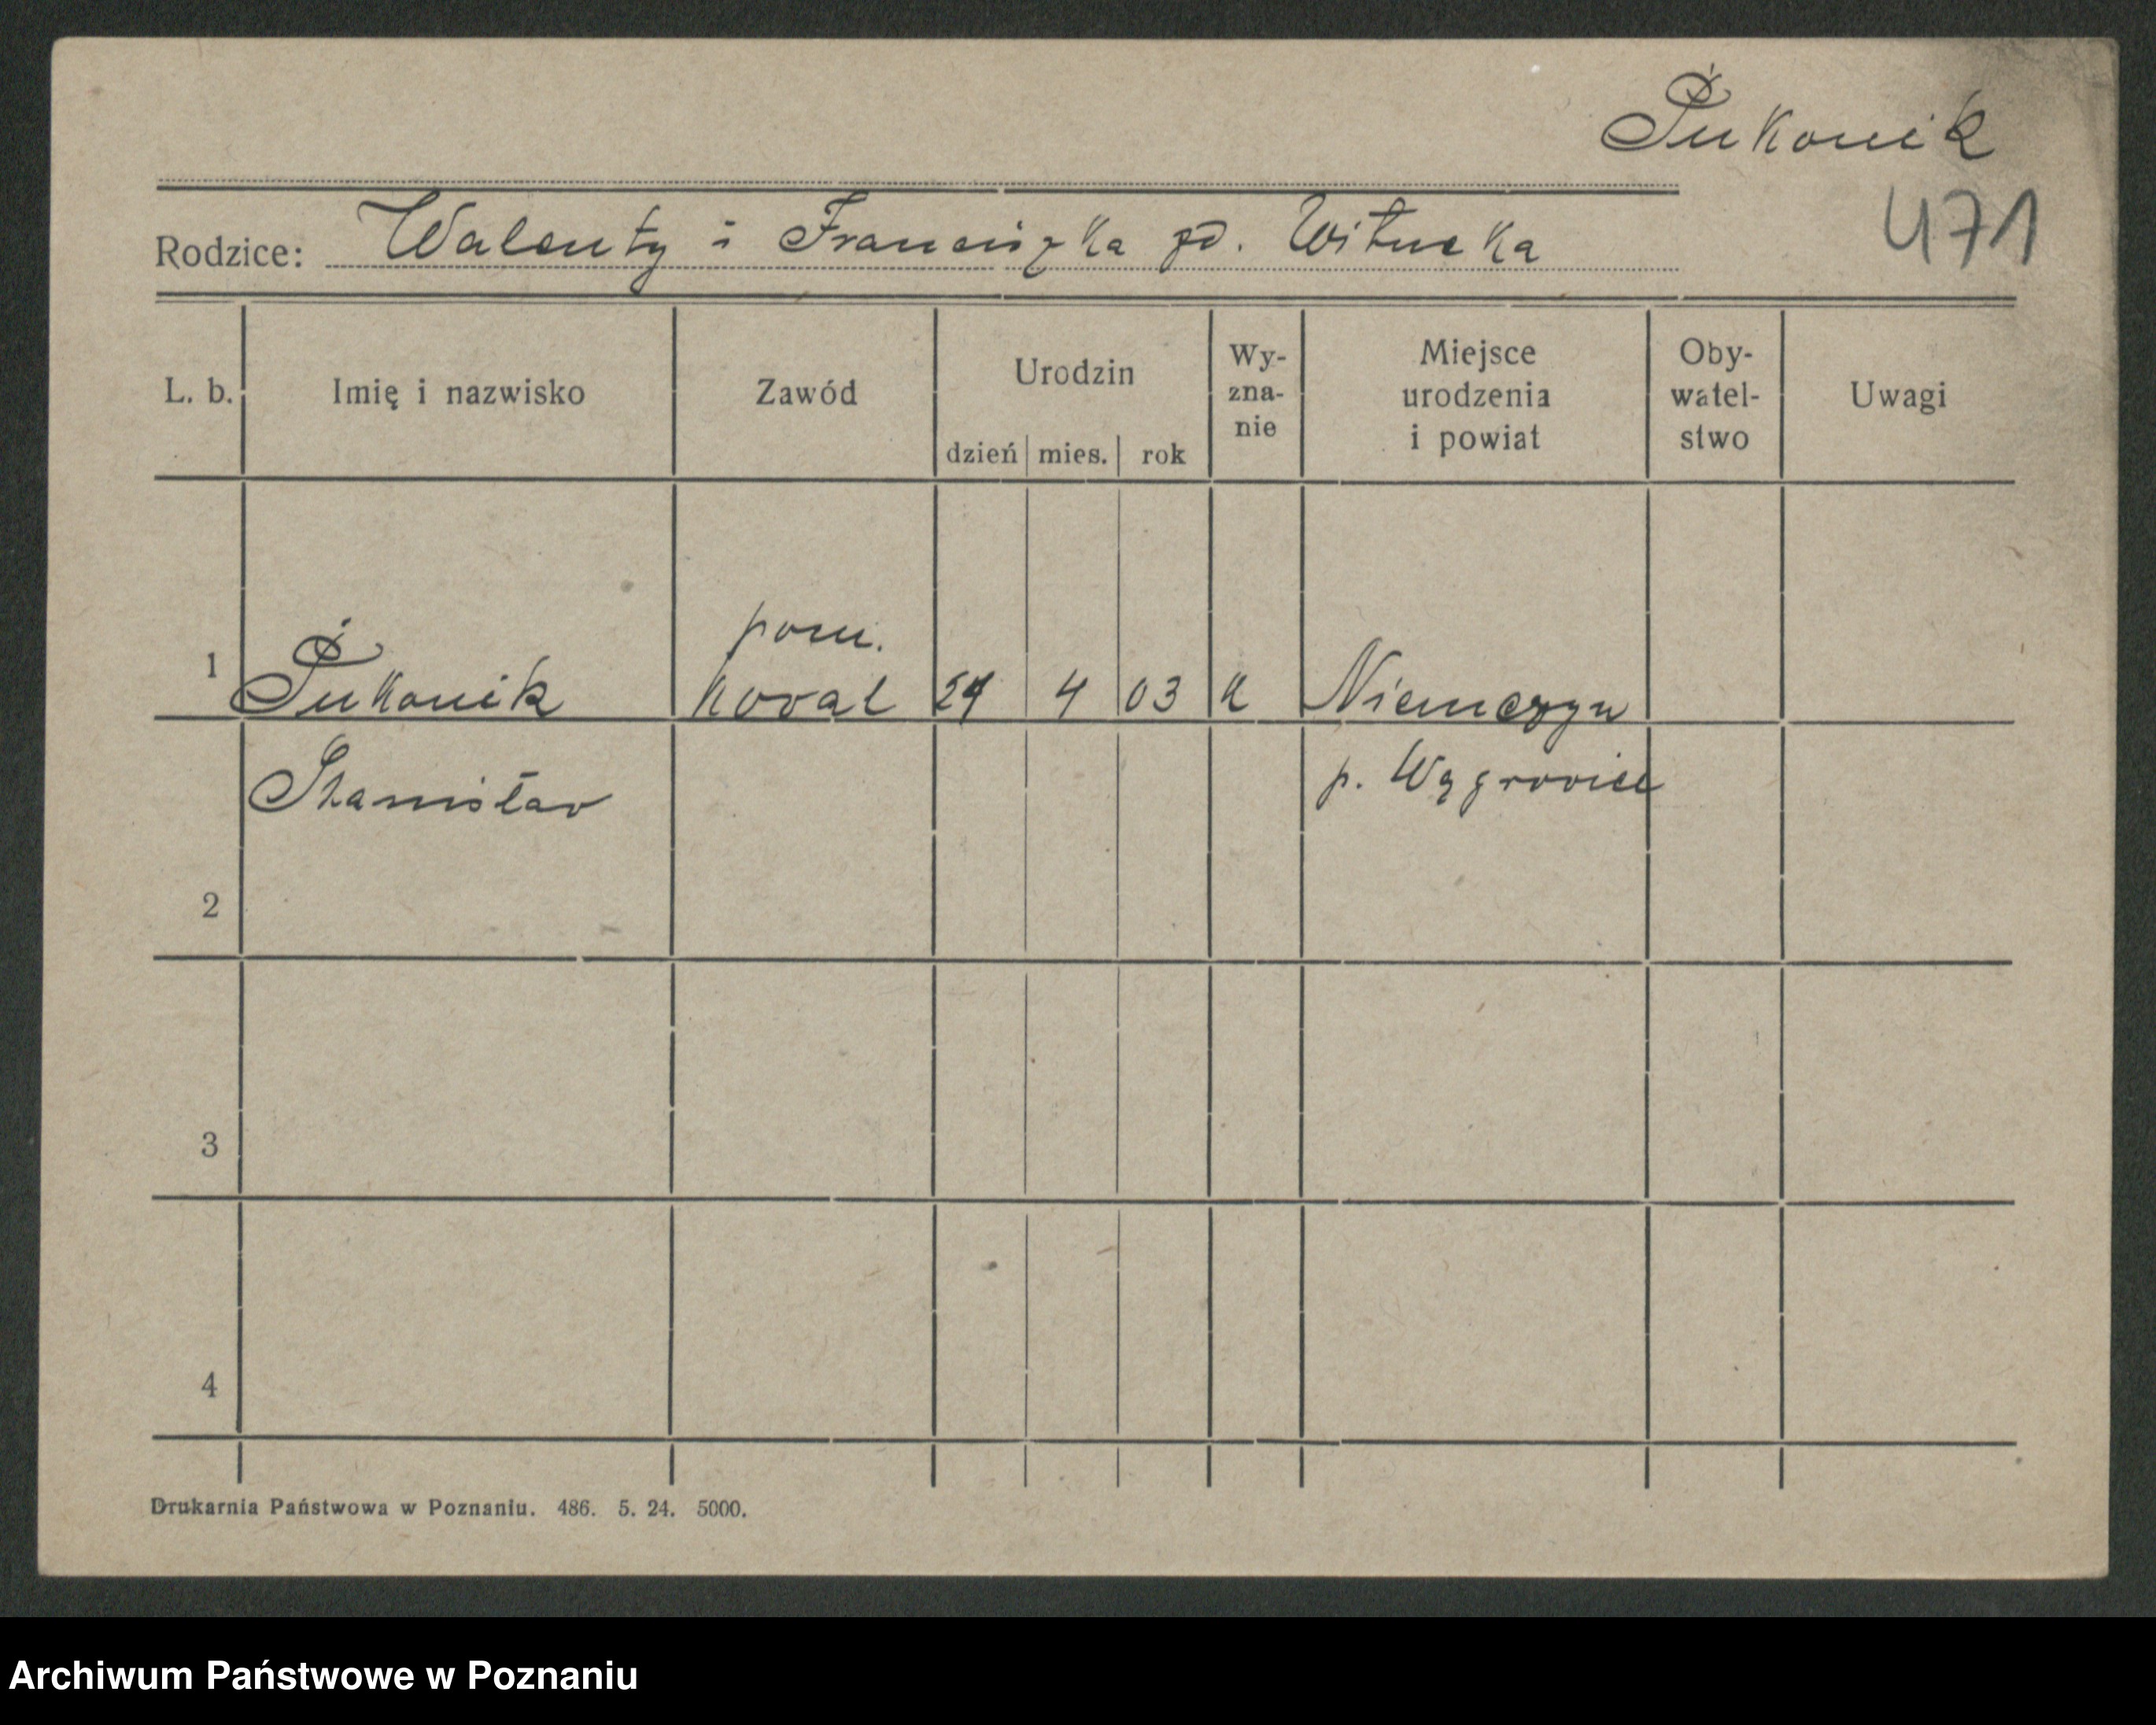 Żukowik
471
Rodzice: Walenty i Franciszka zd. Witucka
L. b.
Imię i nazwisko
Zawód
Urodzin
dzień
mies.
rok
Wy-
zna-
nie
Miejsce
urodzenia
i powiat
Oby-
watel-
stwo
Uwagi
pom.
1
koval
4
03
k
Niemczyn
Stanisław
p. Wągrowiec
2
3
4
Drukarnia Państwowa w Poznaniu. 486. 5. 24. 5000.
Archiwum Państwowe w Poznaniu